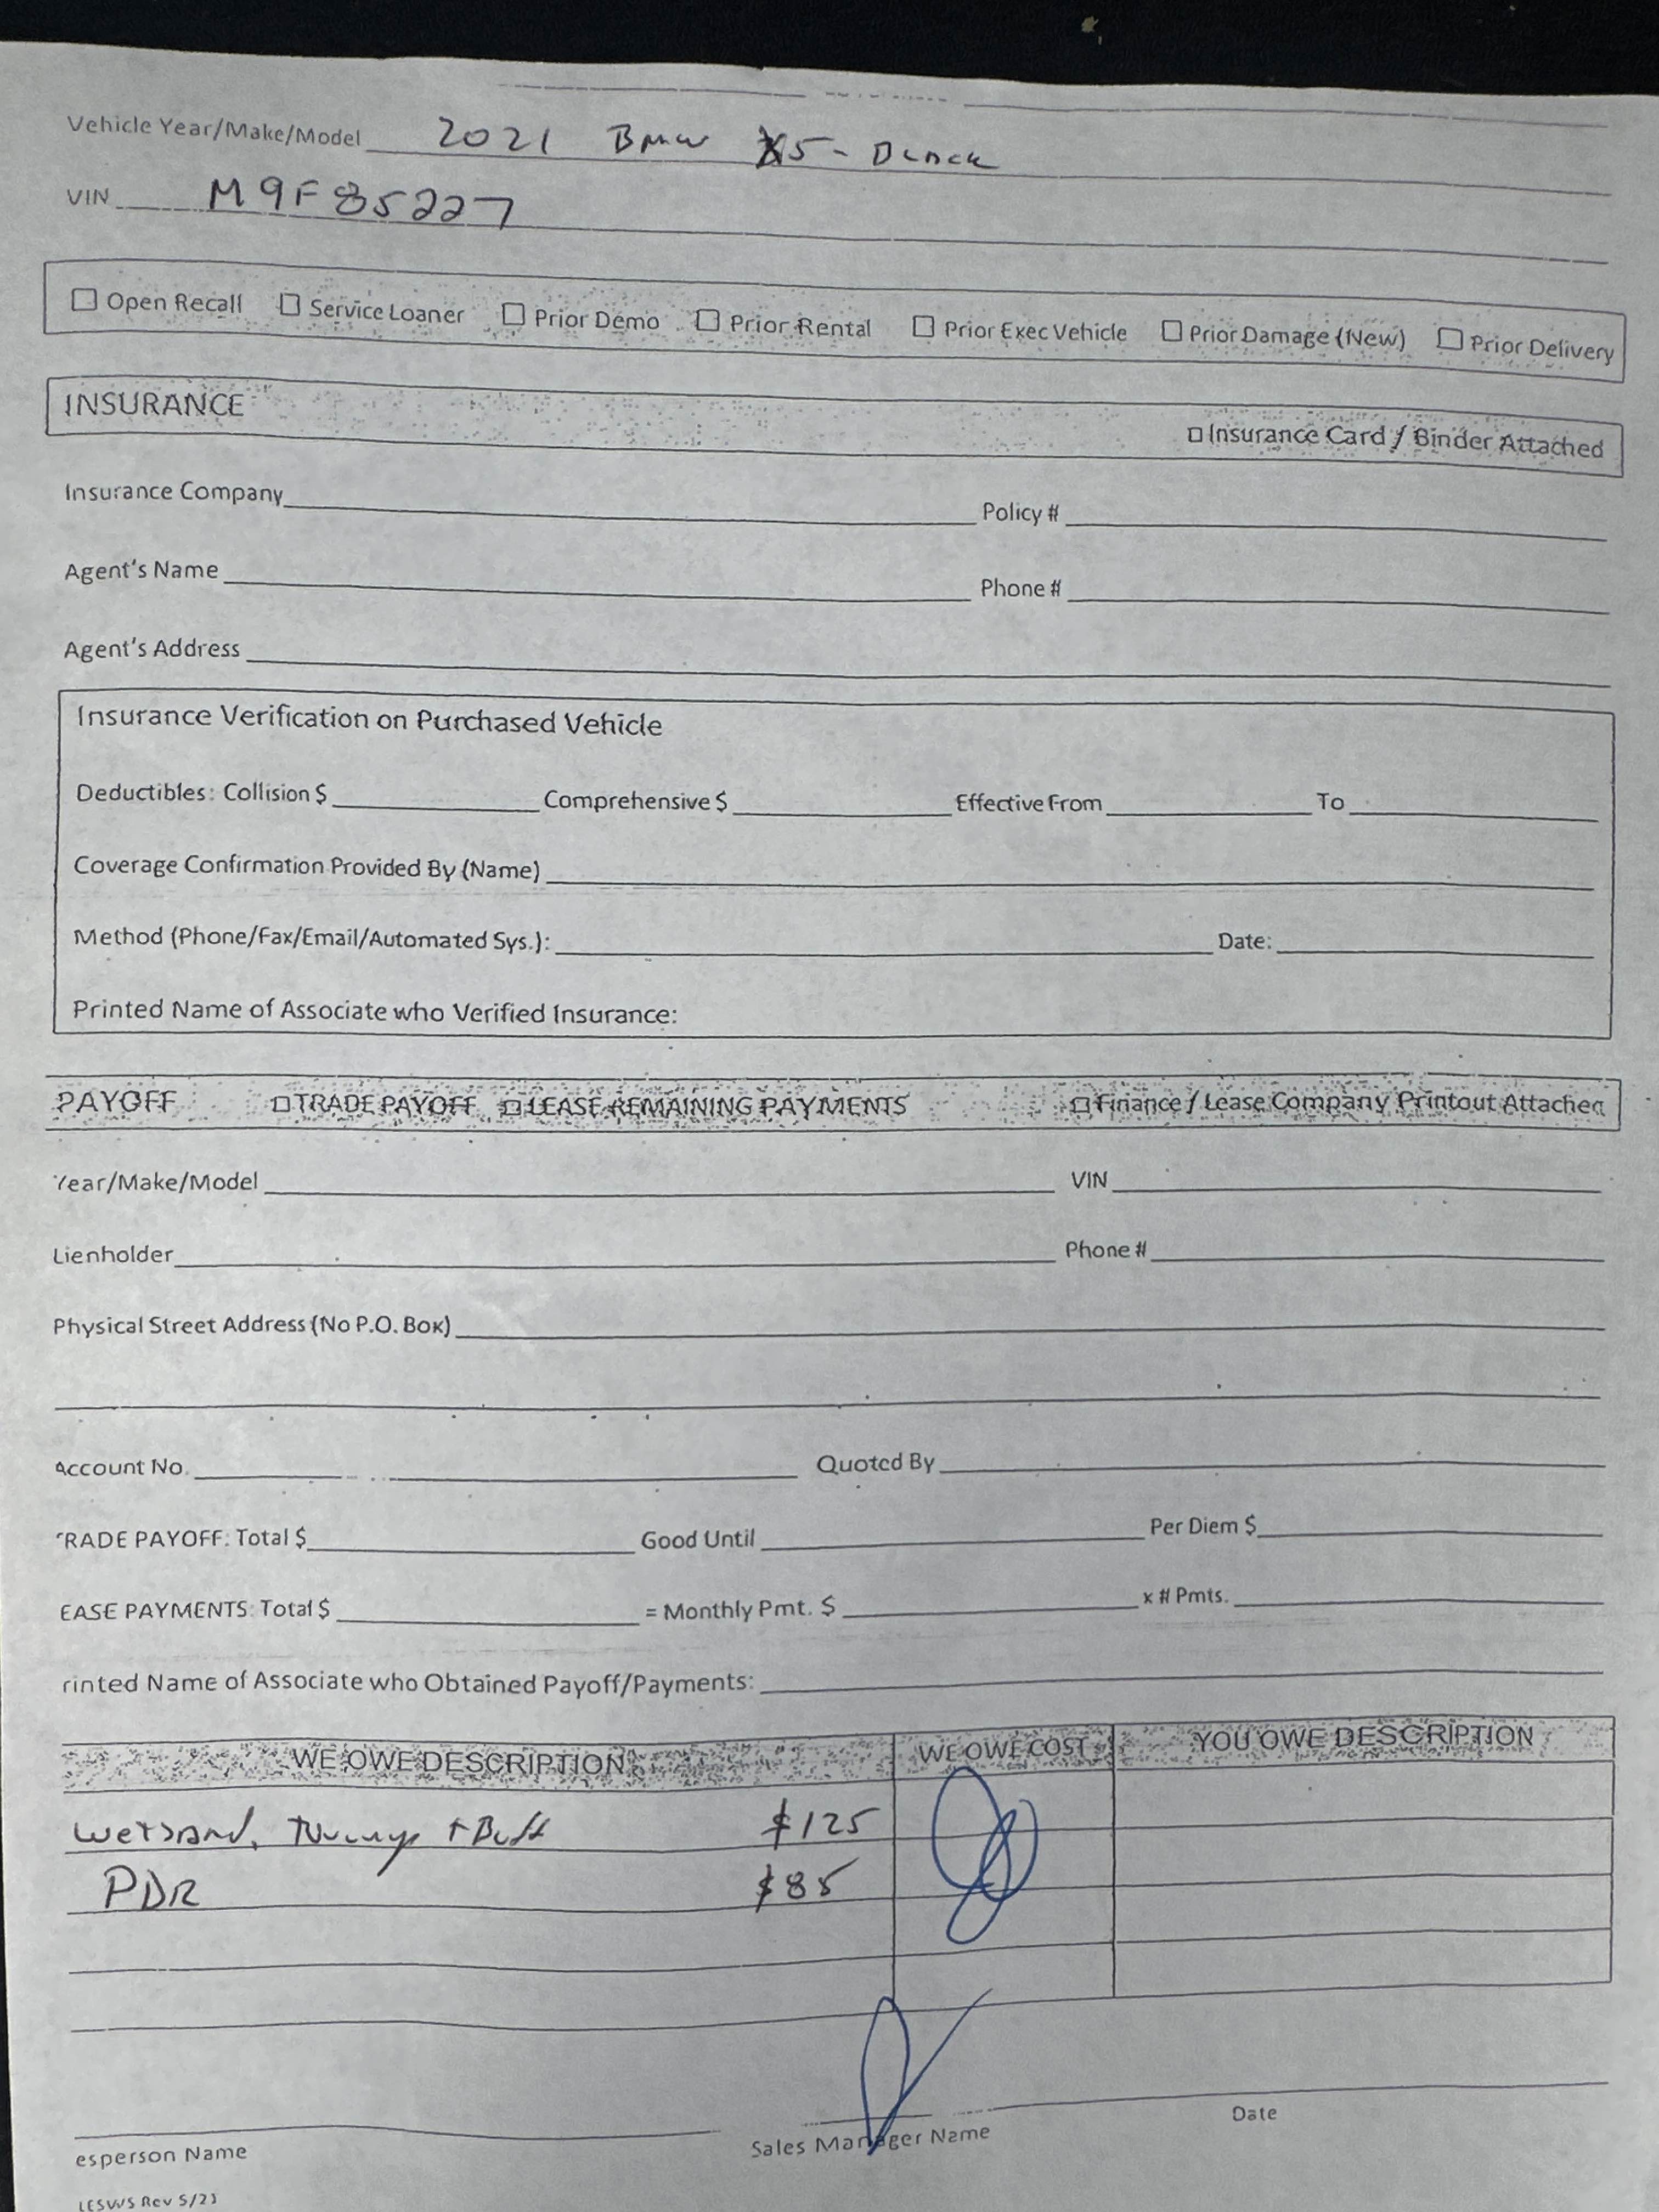 Vehicle Year/Make/Model 2021 BMW X5 -
VIN M9F85227
☐ Open Recall ☐ Service Loaner ☐ Prior Demo ☐ Prior Rental ☐ Prior Exec Vehicle ☐ Prior Damage (New) ☐ Prior Delivery
INSURANCE
☐ Insurance Card / Binder Attached
Insurance Company Policy #
Agent's Name Phone #
Agent's Address
Insurance Verification on Purchased Vehicle
Deductibles: Collision $ Comprehensive $ Effective From To
Coverage Confirmation Provided By (Name)
Method (Phone/Fax/Email/Automated Sys.): Date:
Printed Name of Associate who Verified Insurance:
PAYOFF ☐ TRADE PAYOFF ☐ LEASE REMAINING PAYMENTS ☐ Finance / Lease Company Printout Attached
Year/Make/Model VIN
Lienholder Phone #
Physical Street Address (No P.O. Box)
Account No. Quoted By
RADE PAYOFF: Total $ Good Until Per Diem $
EASE PAYMENTS: Total $ = Monthly Pmt. $ x # Pmts.
rinted Name of Associate who Obtained Payoff/Payments:
WE OWE DESCRIPTION WE OWE COST YOU OWE DESCRIPTION
Wetsand, + Buff $125
PDR $85
esperson Name Sales Manager Name Date
LESWS Rev 5/23